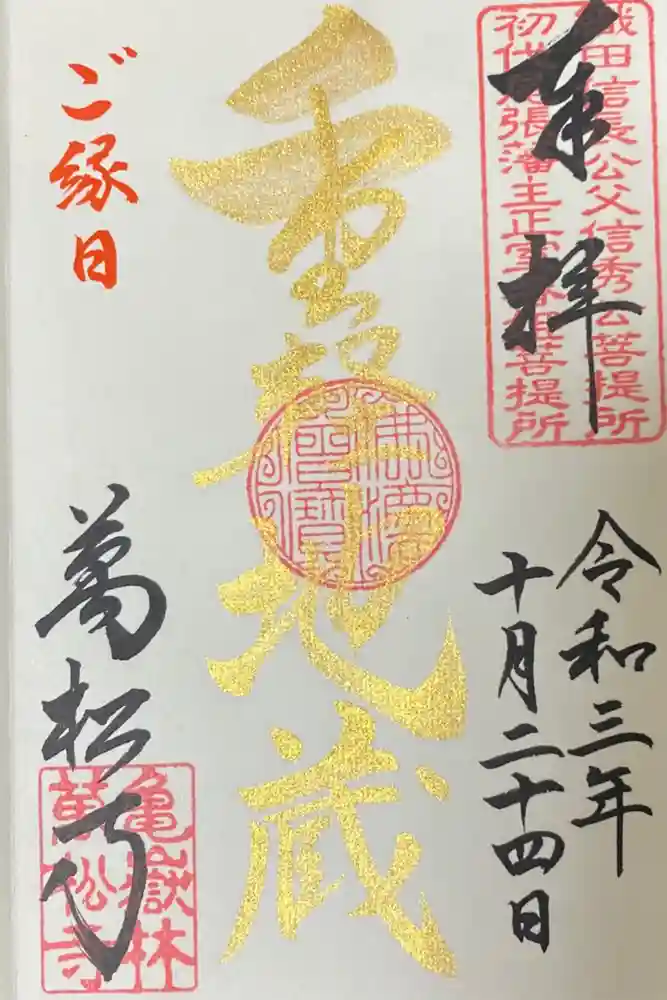 奉拝
織田信長公父信秀公菩提所
初代尾張藩主正室春姫菩提所
令和三年
十月二十四日
重軽地蔵
佛法
僧寶
ご縁日
萬松寺
亀嶽林
萬松寺